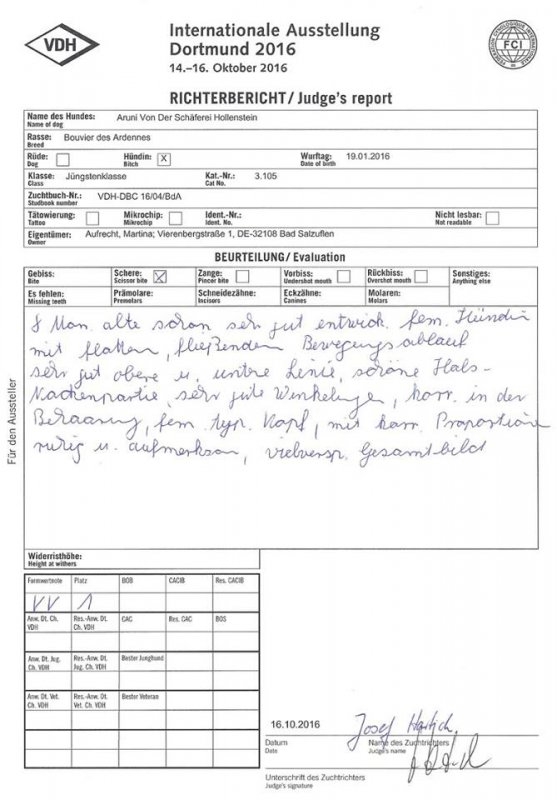 VDH
Internationale Ausstellung
Dortmund 2016
14.–16. Oktober 2016
FEDERATION CYNOLOGIQUE INTERNATIONALE
FCI
RICHTERBERICHT / Judge's report
Name des Hundes: Aruni Von Der Schäferei Hollenstein
Name of dog
Rasse: Bouvier des Ardennes
Breed
Rüde: Hündin: X Wurftag: 19.01.2016
Dog Bitch Date of birth
Klasse: Jüngstenklasse Kat.-Nr.: 3.105
Class Cat No.
Zuchtbuch-Nr.: VDH-DBC 16/04/BdA
Studbook number
Tätowierung: Mikrochip: Ident.-Nr.: Nicht lesbar:
Tattoo Mikrochip Ident. No. Not readable
Eigentümer: Aufrecht, Martina; Vierenbergstraße 1, DE-32108 Bad Salzuflen
Owner
BEURTEILUNG / Evaluation
Gebiss: Schere: X Zange: Vorbiss: Rückbiss: Sonstiges:
Bite Scissor bite Pincer bite Undershot mouth Overshot mouth Anything else
Es fehlen: Prämolare: Schneidezähne: Eckzähne: Molaren:
Missing teeth Premolars Incisors Canines Molars
8 Mon. alte schon sehr gut entwick. fem. Hündin
mit flotten, fließenden Bewegungsablauf
sehr gut obere u. untere Linie, schöne Hals-
Nackenpartie, sehr gute Winkelunge, korr. in der
Behaarung, fem. typ. Kopf, mit harm. Proportion
ruhig u. aufmerksam, vielversp. Gesamtbild
Für den Aussteller
Widerristhöhe:
Height at withers
Formwertnote Platz BOB CACIB Res. CACIB
VV 1
Anw. Dt. Ch. VDH Res.-Anw. Dt. Ch. VDH CAC Res. CAC BOS
Anw. Dt. Jug. Ch. VDH Res.-Anw. Dt. Jug. Ch. VDH Bester Junghund
Anw. Dt. Vet. Ch. VDH Res.-Anw. Dt. Vet. Ch. VDH Bester Veteran
16.10.2016 Josef
Datum Name des Zuchtrichters
Date Judge's name
Unterschrift des Zuchtrichters
Judge's signature